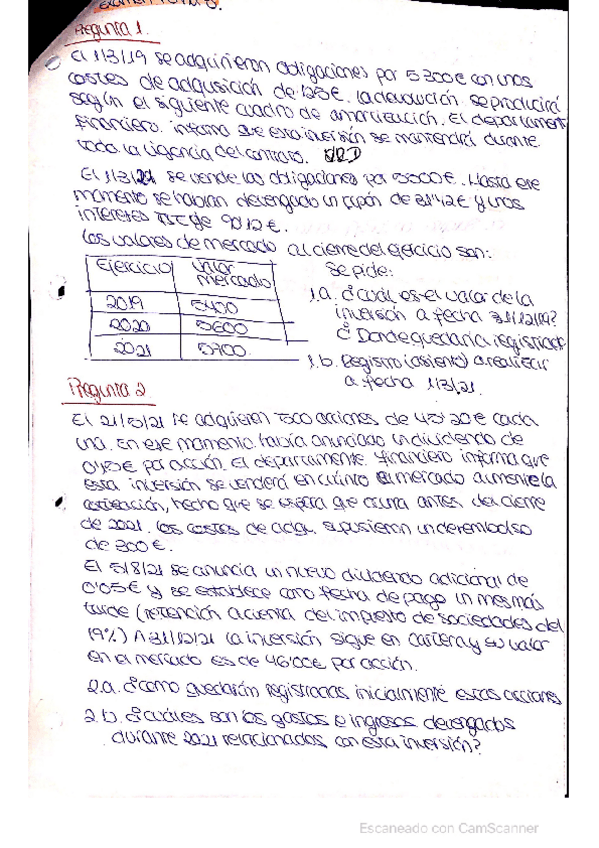 Examen Tema 8.
Pregunta 1.
El 1/3/19 se adquirieron obligaciones por 5300€ con unos
costes de adquisición de 125€. La devolución se producirá
según el siguiente cuadro de amortización. El departament
financiero informa que esta inversión se mantendrá durante
toda la vigencia del contrato.
El 1/3/21 se vende las obligaciones por 5500€. Hasta ese
momento se habían devengado un cupón de y unos
intereses TIE de 90'12€.
Los valores de mercado al cierre del ejercicio son:
Ejercicio Valor mercado
2019 5400
2020 5600
2021 5700
Se pide:
1.a. ¿Cuál es el valor de la
inversión a fecha 31/12/19?
¿Donde quedaría registrada
1.b. Registro (asiento) a realizar
a fecha 1/3/21.
Pregunta 2
El 21/5/21 se adquieren 500 acciones de 45'20€ cada
una. En ese momento había anunciado un dividendo de
0'15€ por acción. El departamento financiero informa que
esta inversión se venderá en cuánto el mercado aumente la
cotización, hecho que se espera que ocurra antes del cierre
de 2021. Los costes de adqu. supusieron un desembolso
de 300€.
El 5/8/21 se anuncia un nuevo dividendo adicional de
0'05€ y se establece como fecha de pago un mes más
tarde (retención a cuenta del impuesto de sociedades del
19%) A 31/12/21 la inversión sigue en cartera y su valor
en el mercado es de 46'00€ por acción.
2.a. ¿Como quedarán registradas inicialmente estas acciones
2.b. ¿Cuáles son los gastos e ingresos devengados
durante 2021 relacionados con esta inversión?
Escaneado con CamScanner